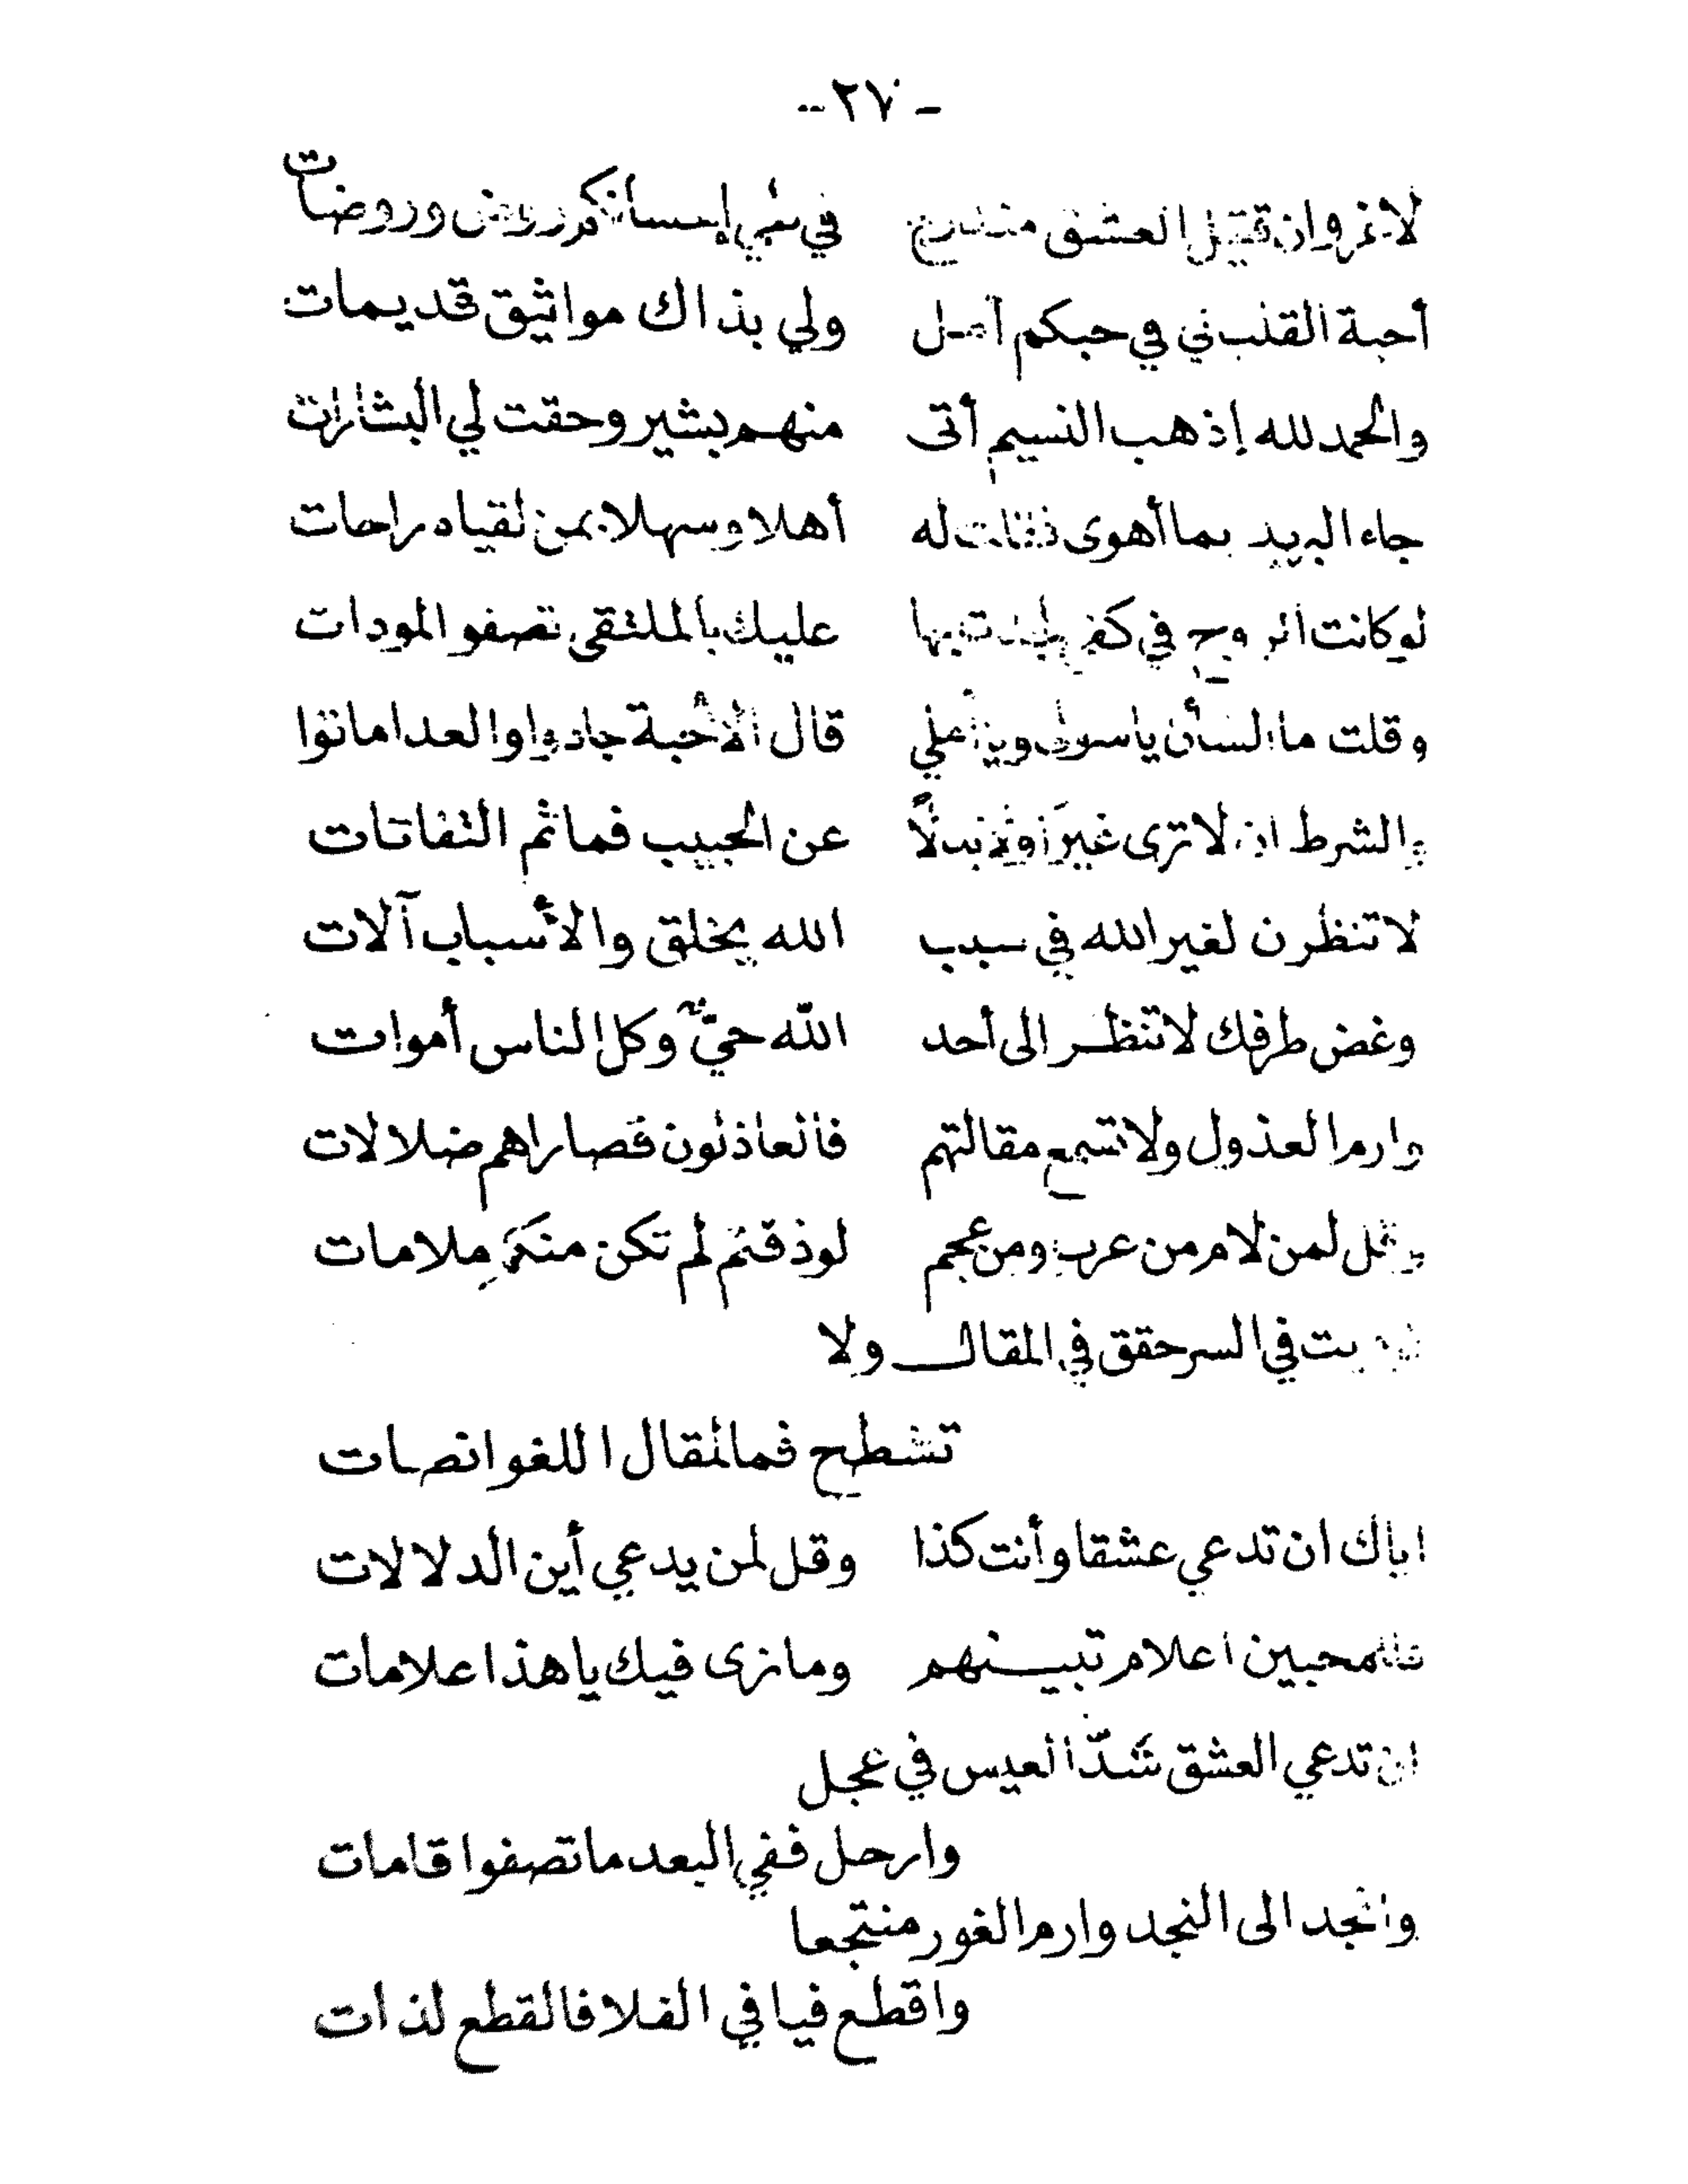 - ٢٧ -
لاغرو ان قتيل العشق في إحسانكم روض وروضات
أحبة القلب لي في حبكم أمل ولي بذاك مواثيق قديمات
والحمد لله إذ هب النسيم أتى منهم بشير وحقت لي البشارات
جاء البريد بما أهوى فقلت له أهلا وسهلا بمن لقياه راحات
لو كانت الروح في كفي عليك بالملتقى تصفو المودات
وقلت ما الشأن يا سولي قال الأحبة جادوا والعدا ماتوا
والشرط ان لا ترى غيرا ولا بدلاً عن الحبيب فما ثم التفاتات
لا تنظرن لغير الله في سبب الله يخلق والأسباب آلات
وغض طرفك لا تنظر الى أحد اللّه حيّ وكل الناس أموات
وارم العذول ولا تسمع مقالتهم فالعاذلون قصاراهم ضلالات
وقل لمن لام من عرب ومن عجم لو ذقتم لم تكن منكم ملامات
في السر حقق في المقال ولا
تشطح فما لمقال اللغو انصات
اياك ان تدعي عشقا وأنت كذا وقل لمن يدعي أين الدلالات
فللمحبين اعلام تبينهم وما نرى فيك يا هذا علامات
ان تدعي العشق شدّ العيس في عجل
وارحل ففي البعد ما تصفوا قامات
وانجد الى النجد وارم الغور منتجعا
واقطع فيافي الفلا فالقطع لذات